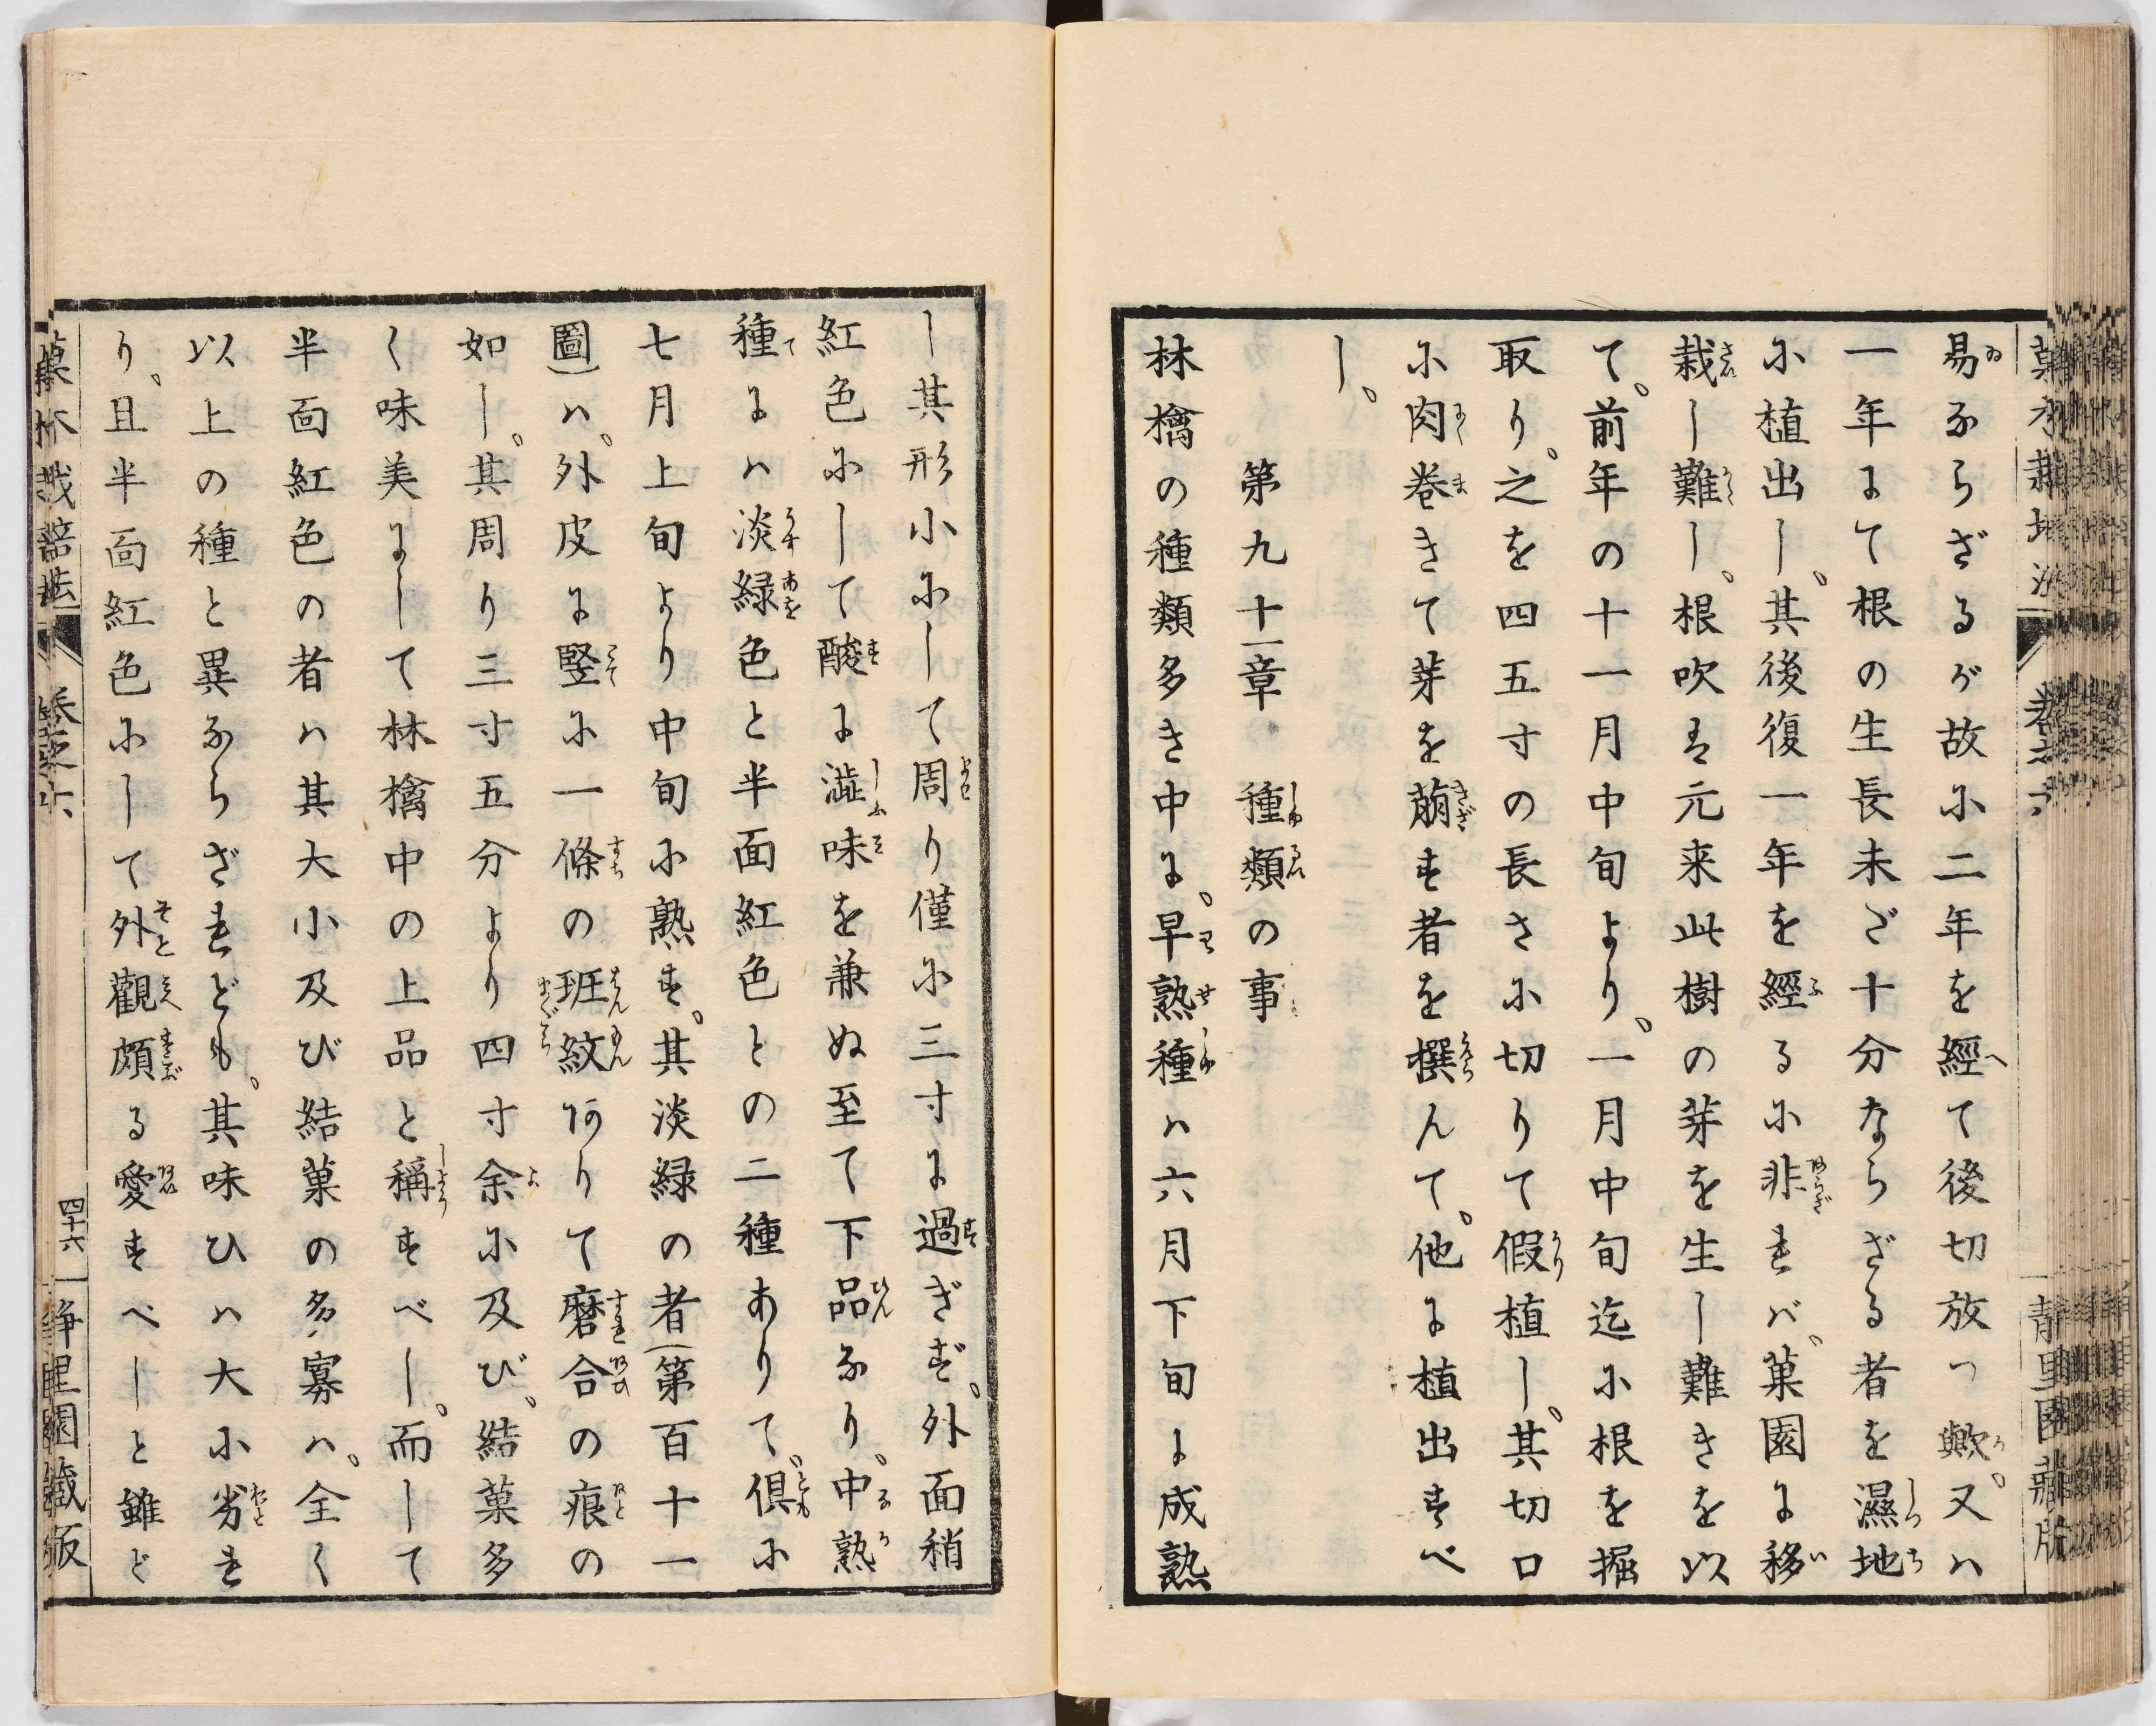 易ならざるが故に二年を經て後切放つ歟。又ハ
一年にて根の生長未ざ十分ならざる者を濕地
に植出し。其後復一年を經るに非ればﾞ。菓園に移
栽し難し。根吹は元来此樹の芽を生し難きを以
て。前年の十一月中旬より。一月中旬迄に根を掘
取り。之を四五寸の長さに切りて假植し。其切口
に肉巻きて芽を萠す者を撰んて。他に植出すべ
し。
第九十一章　種類の事
林檎の種類多き中に。早熟種ハ六月下旬に成熟
し其形小にして周り僅に三寸に過ぎず。外面稍
紅色にして酸に澁味を兼ぬ至て下品なり。中熟
種にハ淡緑色と半面紅色との二種ありて。倶に
七月上旬より中旬に熟す。其淡緑の者(第百十一
圖)ハ。外皮に竪に一條の斑紋ありて磨合の痕の
如し。其周り三寸五分より四寸余に及び。結菓多
く味美にして林檎中の上品と稱すべし。而して
半面紅色の者ハ其大小及び結菓の多寡ハ。全く
以上の種と異ならざれども。其味ひハ大に劣れ
り。且半面紅色にして外觀頗る愛すべしと雖ど
菓木栽培法　卷之六　四十六　静里園藏版